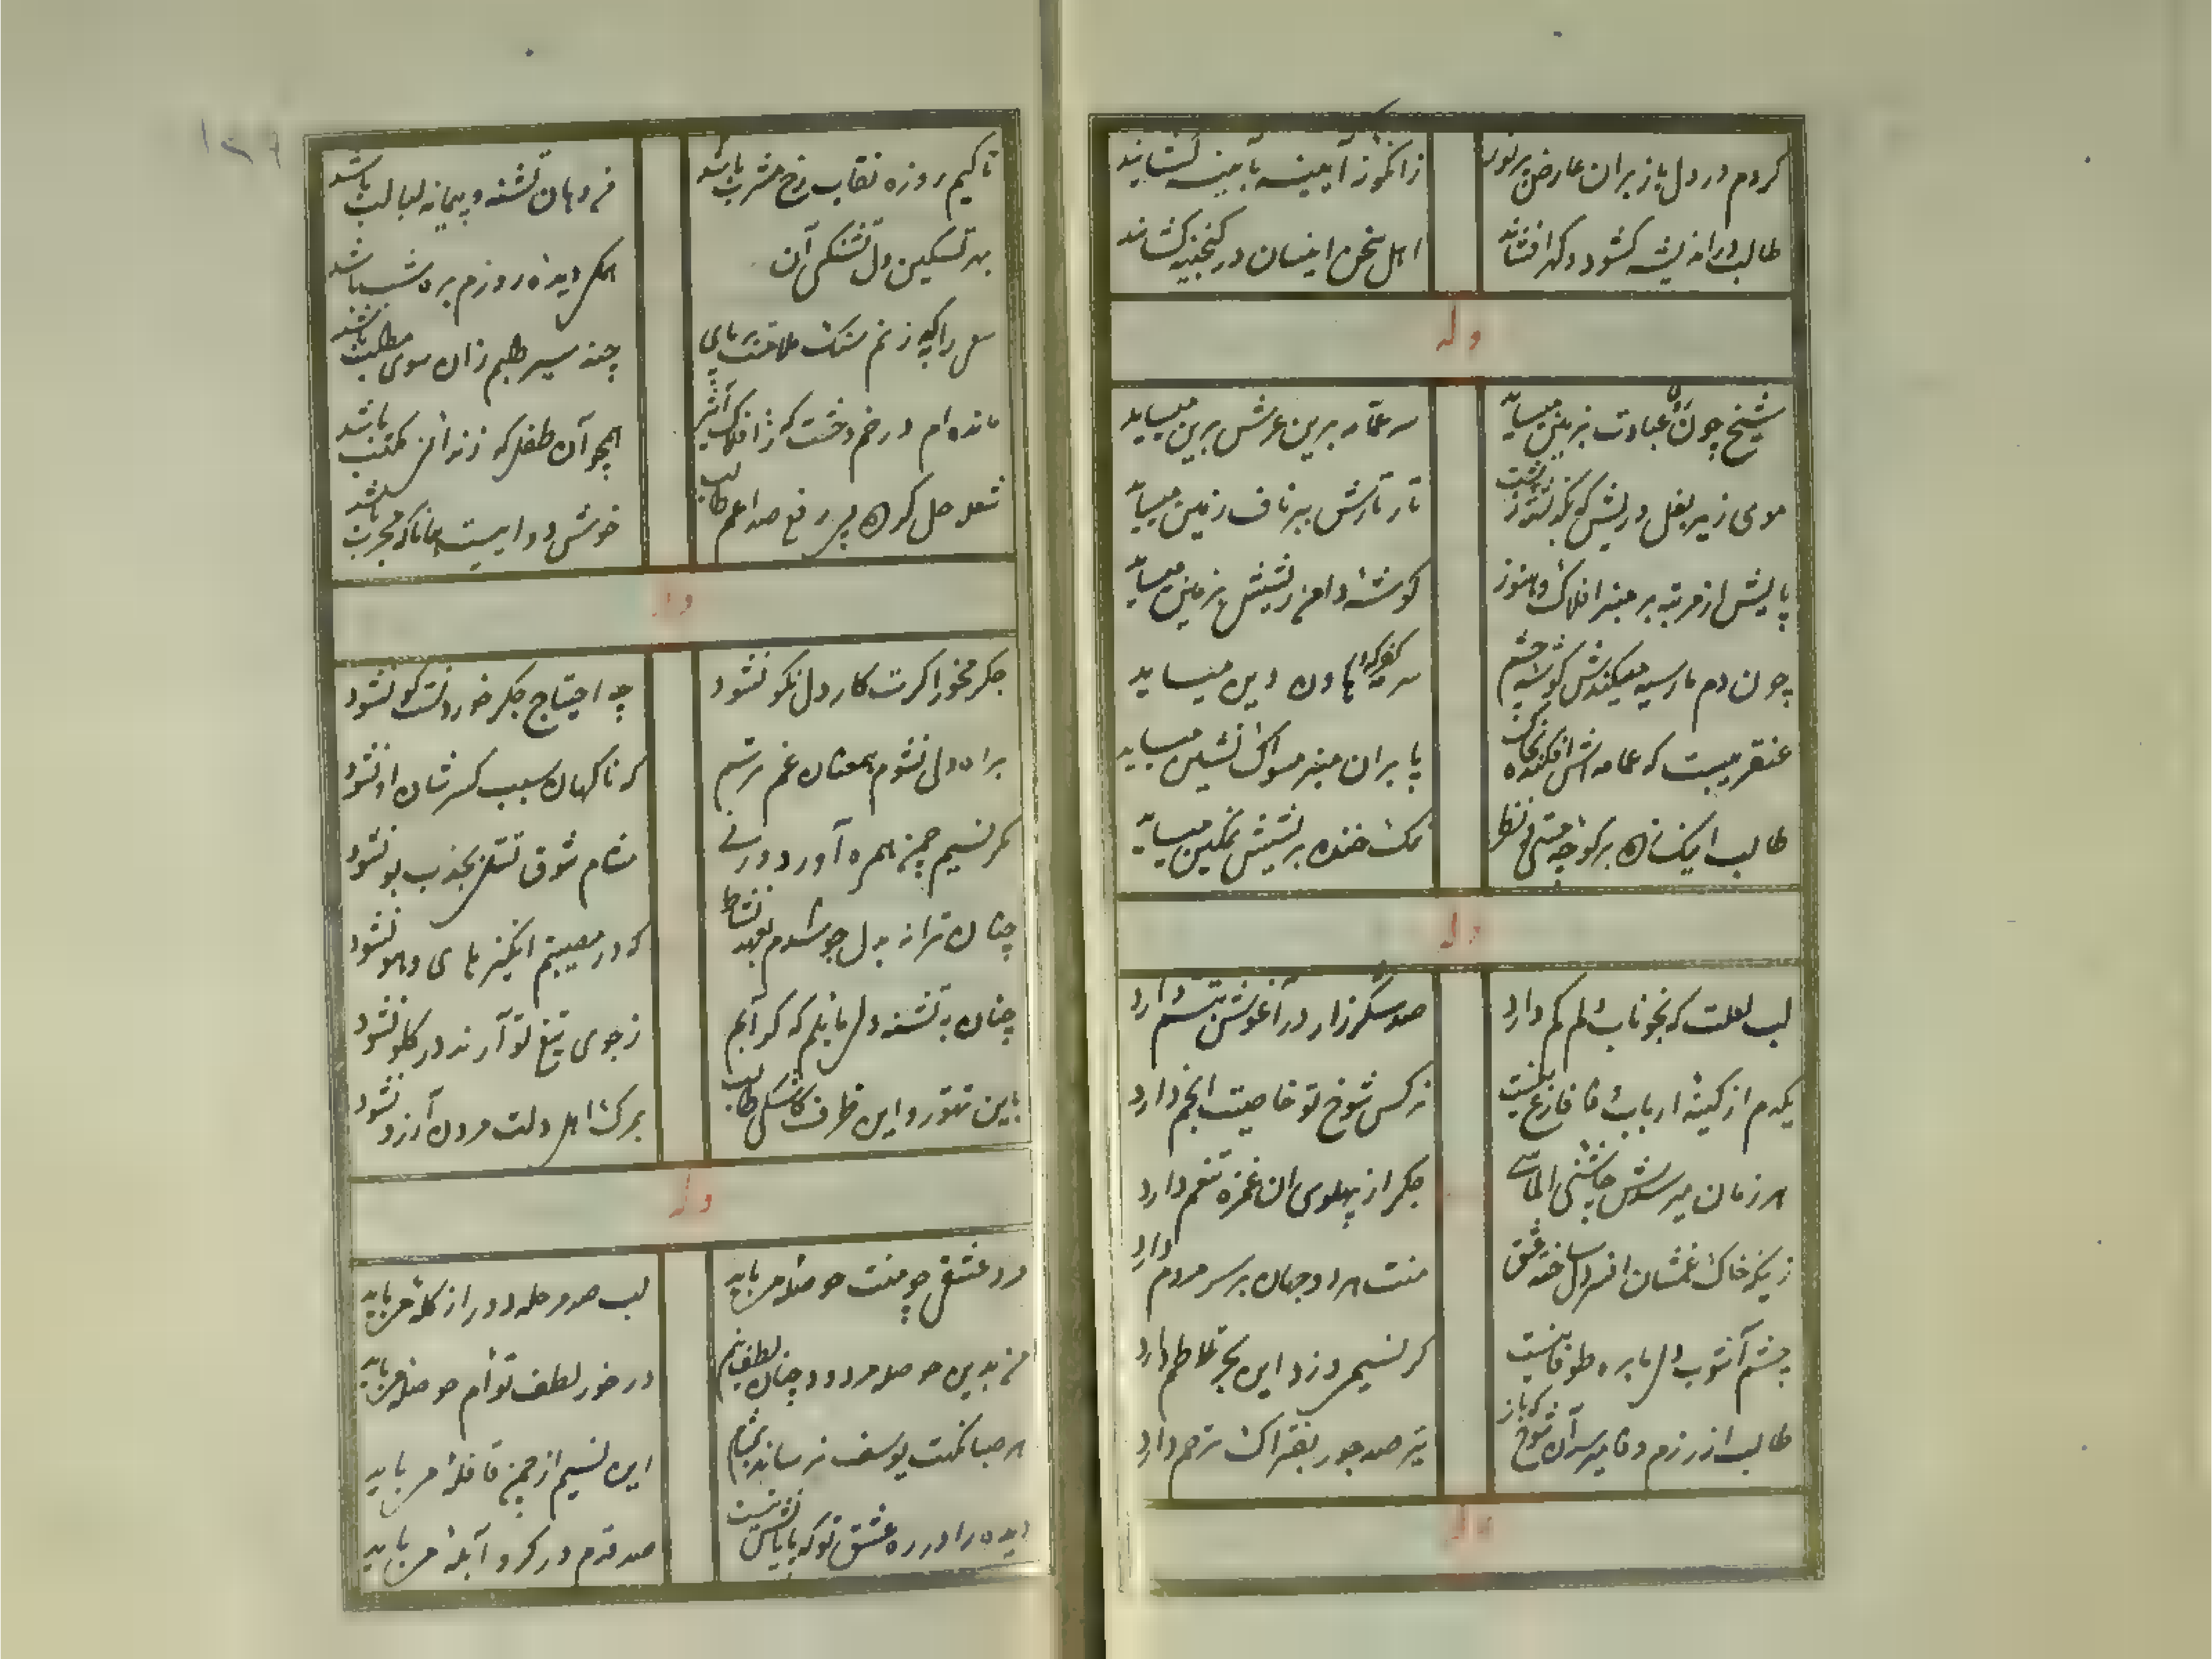 کردم در دل باز بران عارض پرنور
زانگونه آیینه بآیینه کشایند
طالب در اندیشه کشود و گهر افشاند
اهل سخن اینسان در گنجینه کشایند
وله
شیخ چون عبادت بزمین میساید
سر عمامه برین عرش برین میساید
موی زیر بغل و ریش که بگذشت
تار تارش بسر ناف زمین میساید
پایش از مرتبه بر منبر افلاک و هنوز
گوشه دامن ریشش بزمین میساید
چون دم مار سیه میکندش گوشه چشم
سرمه دین میساید
که عمامه اش افکنده
پا بران منبر مسواک نشین میساید
طالب اینک
نمک خنده بریشش نمکین میساید
وله
لب لعلت که بخوناب دلم کم دارد
صد شکرزار در آغوش تبسم دارد
یکدم از کینه ارباب وفا فارغ نیست
نرکس شوخ تو خاصیت انجم دارد
هر زمان میرسدش چاشنی الماسی
جکر از پهلوی ان غمزه تنعم دارد
زیکه خاک غمشان افسر دل ساخته عشق
منت هر دو جهان بر سر مردم دارد
چشم آشوب دل ما بره طوفانست
کر نسیمی وزد این بحر تلاطم دارد
طالب از رزم وفا میرسد آن شوخ که باز
تیر صد جور بفتراک ترحم دارد
وله
تا کیم روزه نقاب رخ مشرب باشد
من دهان تشنه و پیمانه لبالب باشد
بهر تسکین دل تشنگی آن
همکی دیده روزم بره شب باشد
سعی را کی زنم سنک ملامت بر پای
چند سیر طلبم زان سوی مطلب باشد
مانده ام در خم وحشت که ز افلاک اثیر
همچو آن طفل که زندانی مکتب باشد
شعله حل کرده پی رفع صداعم طالب
خوش دوایست همانا که مجرب باشد
وله
جکر مخور اکرت کار دل نکو نشود
چه احتیاج جکر خوردنت کو نشود
براه دل نشوم همعنان غم ترسم
که ناکهان سبب کسر شان او نشود
مگر نسیم چمن همره آورد ور نی
مشام شوق تسلی بجذب بو نشود
چنان ترانه بدل جو شدم بعهد نشاط
که در مصیبتم انگیز های و هو نشود
چنان به تشنه دلی مایلم که گر آبم
ز جوی تیغ تو آرند در کلو نشود
باین تهور و این ظرف کاشکی طالب
بمرک اهل دولت مردن آرزو نشود
وله
مرد عشقی چو منت حوصله می باید
لب صد مرحله دور از کله می باید
من بدین حوصله مردود و چنان لطف نیم
در خور لطف توام حوصله می باید
هر صبا نکهت یوسف نرساند بمشام
این نسیم از چمن قافله می باید
دیده را در ره عشق تو که پایانش نیست
صد قدم در کرو آبله می باید